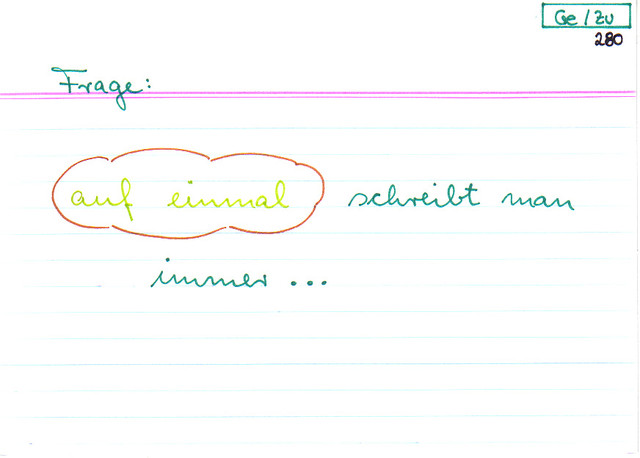 Ge/Zu
280
Frage:
auf einmal schreibt man
immer ...